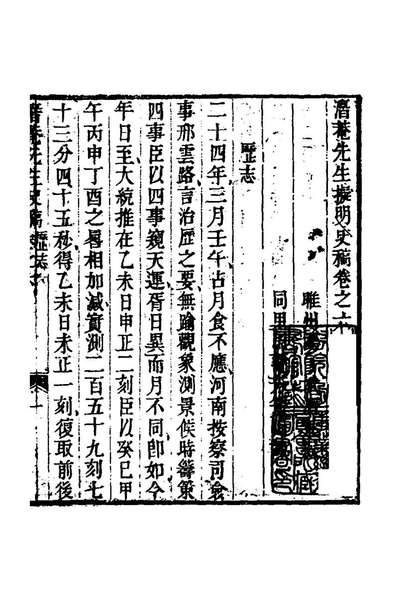 潛菴先生擬明史稿卷之六
睢州
同里
歷志
二十四年三月壬午占月食不應河南按察司僉
事邢雲路言治歷之要無踰觀象測景候時籌策
四事臣以四事窺天運胥日異而月不同卽如今
年日至大統推在乙未日申正二刻臣以癸巳甲
午丙申丁酉之晷相加減實測二百五十九刻七
十三分四十五秒得乙未日未正一刻復取前後
潛菴先生史稿 歷志 一